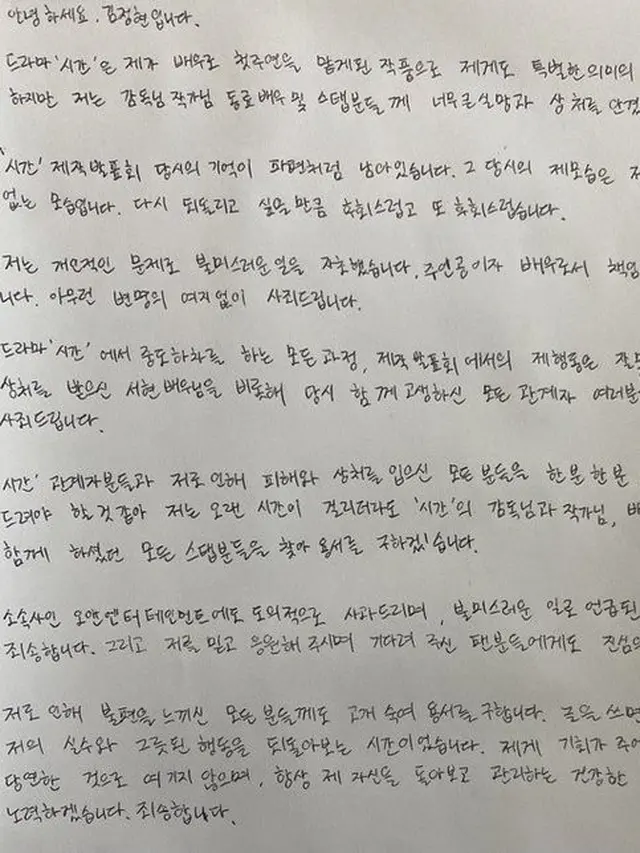 안녕하세요. 김정현입니다.
드라마 '시간'은 제가 배우로 첫주연을 맡게된 작품으로 제게도 특별한 의미의
하지만 저는 감독님 작가님 동료배우 및 스탭분들께 너무 큰 실망과 상처를 안겼
'시간' 제작발표회 당시의 기억이 파편처럼 남아있습니다. 그 당시의 제모습은 저
없는 모습입니다. 다시 되돌리고 싶을 만큼 후회스럽고 또 후회스럽습니다.
저는 개인적인 문제로 불미스러운 일을 자초했습니다. 주연공이자 배우로서 책임
니다. 아무런 변명의 여지없이 사죄드립니다.
드라마 '시간' 에서 중도하차를 하는 모든과정, 제작발표회에서의 제행동은 잘못
상처를 받으신 서현 배우님을 비롯해 당시 함께 고생하신 모든 관계자 여러분
사죄드립니다.
시간' 관계자분들과 저로 인해 피해와 상처를 입으신 모든 분들을 한분 한분
드려야 할것 같아 저는 오랜 시간이 걸리더라도 '시간'의 감독님과 작가님, 배
함께 하셨던 모든 스탭분들을 찾아 용서를 구하겠습니다.
소속사인 오앤엔터테인먼트에도 도의적으로 사과드리며, 불미스러운 일로 언급된
죄송합니다. 그리고 저를 믿고 응원해 주시며 기다려 주신 팬분들에게도 진심으
저로 인해 불편을 느끼신 모든 분들께도 고개 숙여 용서를 구합니다. 글을 쓰면
저의 실수와 그릇된 행동을 되돌아보는 시간이었습니다. 제게 기회가 주어
당연한 것으로 여기지 않으며, 항상 제 자신을 돌아보고 관리하는 건강한
노력하겠습니다. 죄송합니다.